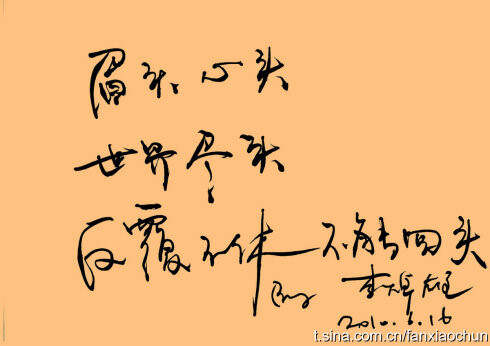 眉头、心头
世界尽头
反覆不休 不肯回头
By 李焯雄
2010.6.16
t.sina.com.cn/fanxiaochun